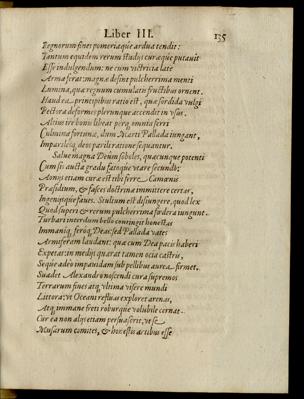 Liber III. 135
Regnorum fines pomeriaque ardua tendit:
Tantum equidem rerum studijs curæque putauit
Esse indulgendum: ne cum victricia late
Arma ferat: magnæ desint pulcherrima menti
Lumina, quæ regnum cumulatis fructibus ornent.
Haud ea principibus ratio est, quæ sordida vulgi
Pectora deformes plerunque accendit in vsus.
Altius ire boni libeat per omnia ferri
Culmina fortunæ, dum Marti Pallada iungant,
Imparibusque deos parili ratione sequantur.
Salue magna Deûm soboles, quacunque potenti
Cum sis aucta gradu fatoque vtare secundo:
Aonij etiam cura est tibi ferre Camœnis
Præsidium, & fasces doctrina immittere certas,
Ingenijsque faues. Stultum est difiungere, quod lex
Quod superi & rerum pulcherrima fœdera iungunt.
Turbari interdum bello contingit honestas
Immaniq, feroq; Deæ: sed Pallada vates
Armiferam laudant: quæ cum Dea pacis haberi
Expetat: in medijs quærat tamen ocia castris,
Seque adeo impauidam sub pellibus aurea firmet.
Suadet Alexandro noscendi cura supremos
Terrarum fines atq, vltima visere mundi
Littora: vt Oceani refluas exploret arenas,
Atq, immane freti roburque volubile cernat.
Cur ea non alijs etiam persuaserit, vt se
Musarum comites, & honestis artibus esse